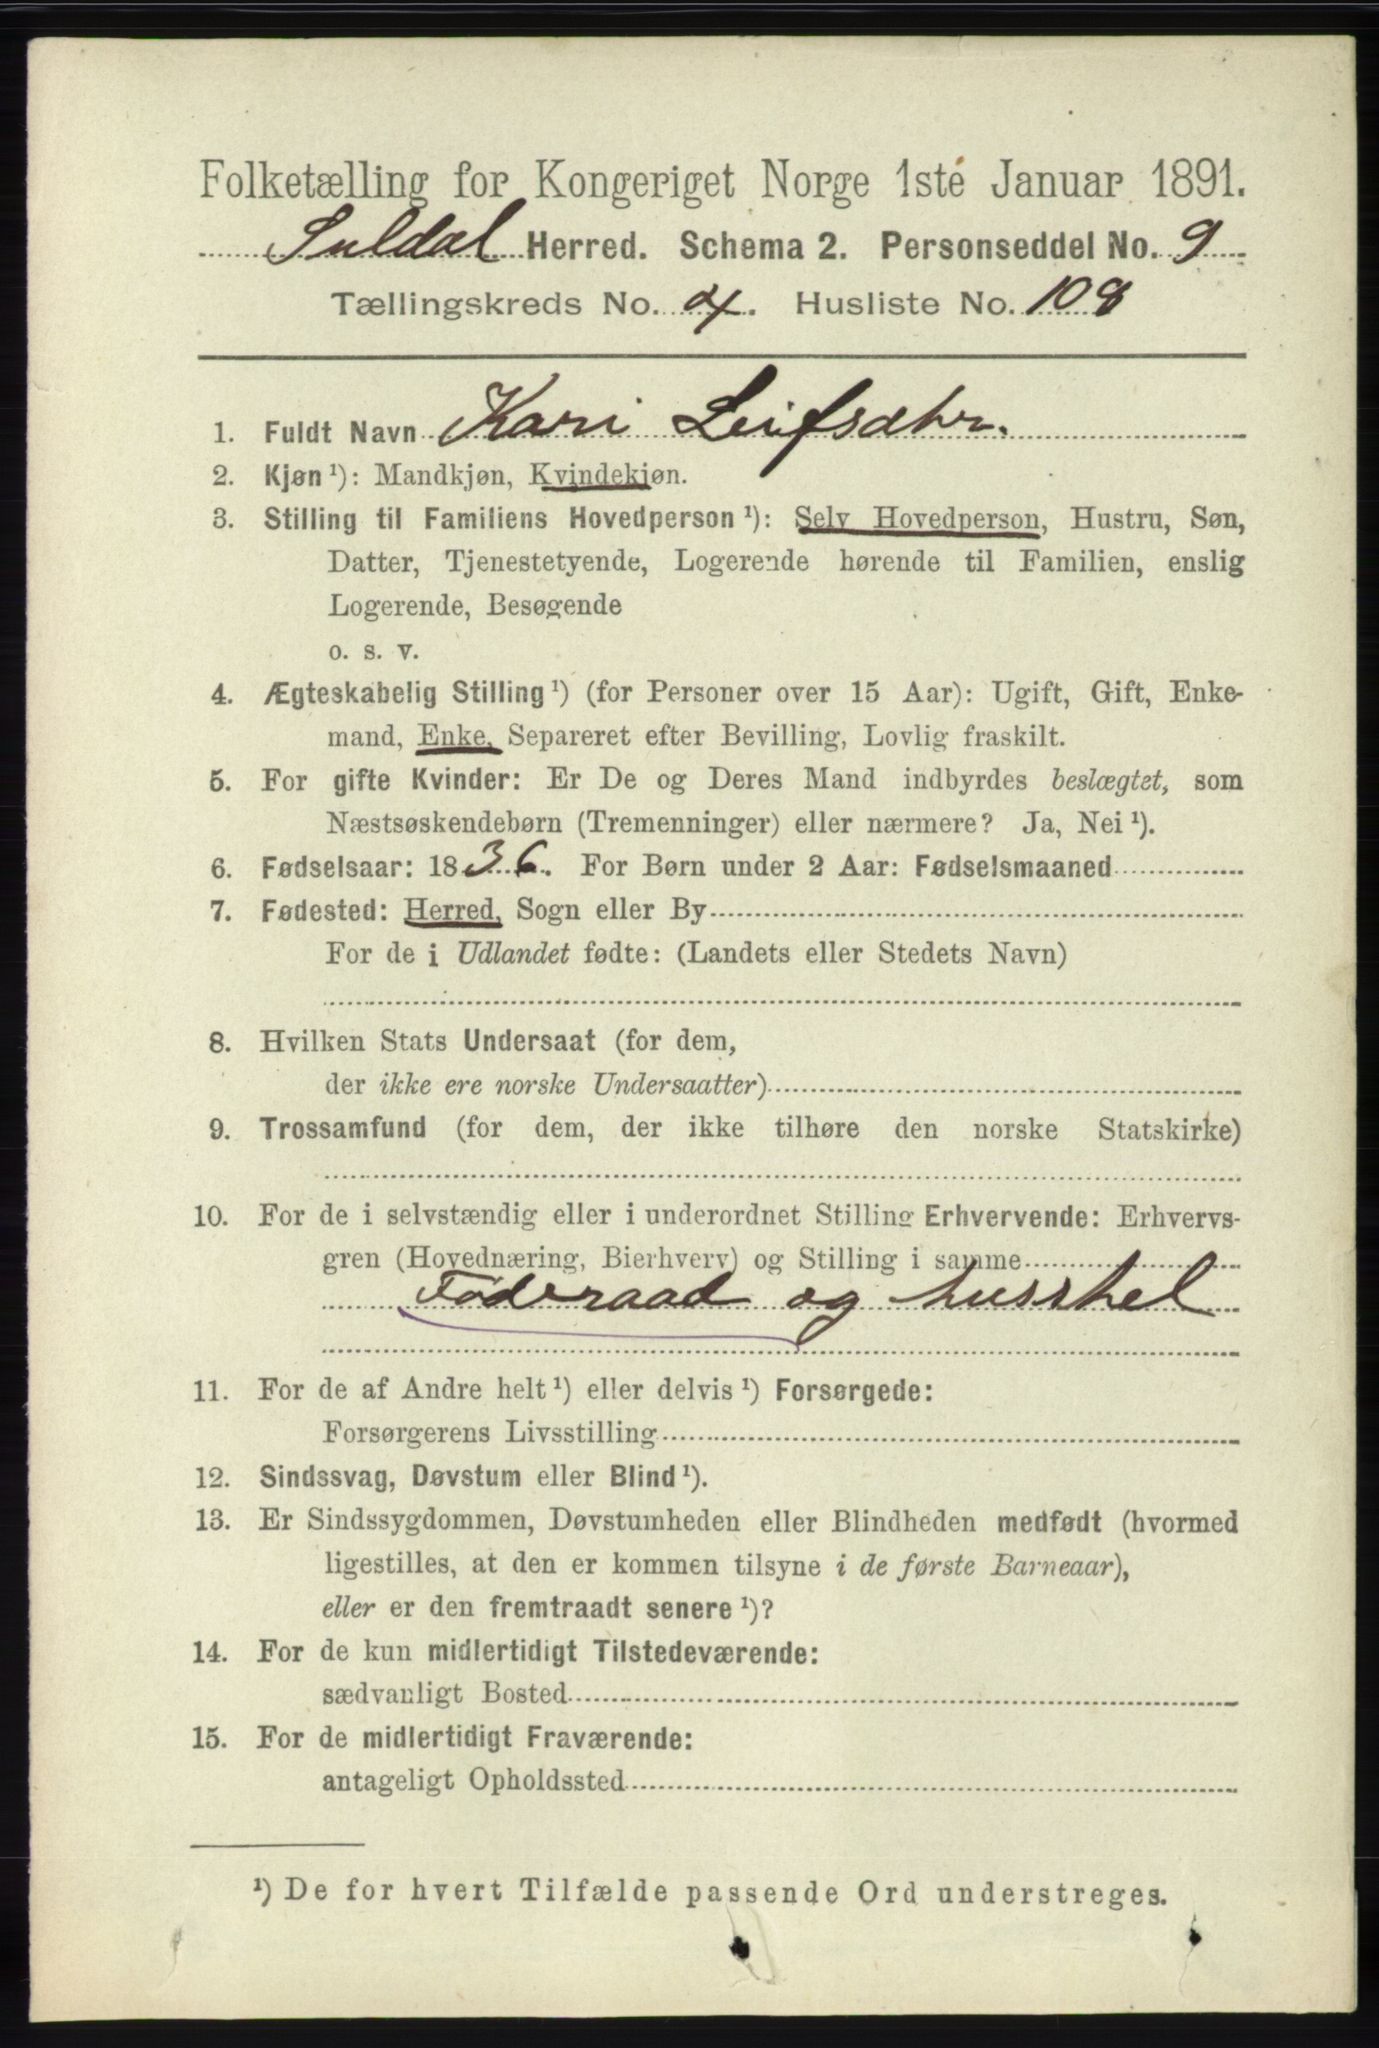 Folketælling for Kongeriget Norge 1ste Januar 1891.
Suldal Herred. Schema 2. Personseddel No. 9
Tællingskreds No. 4. Husliste No. 108
1. Fuldt Navn Kari Leifsdtr.
2. Kjøn ¹): Mandkjøn, Kvindekjøn.
3. Stilling til Familiens Hovedperson ¹): Selv Hovedperson, Hustru, Søn,
Datter, Tjenestetyende, Logerende hørende til Familien, enslig
Logerende, Besøgende
o. s. v.
4. Ægteskabelig Stilling ¹) (for Personer over 15 Aar): Ugift, Gift, Enke-
mand, Enke, Separeret efter Bevilling, Lovlig fraskilt.
5. For gifte Kvinder: Er De og Deres Mand indbyrdes beslægtet, som
Næstsøskendebørn (Tremenninger) eller nærmere? Ja, Nei ¹).
6. Fødselsaar: 1836. For Børn under 2 Aar: Fødselsmaaned
7. Fødested: Herred, Sogn eller By
For de i Udlandet fødte: (Landets eller Stedets Navn)
8. Hvilken Stats Undersaat (for dem,
der ikke ere norske Undersaatter)
9. Trossamfund (for dem, der ikke tilhøre den norske Statskirke)
10. For de i selvstændig eller i underordnet Stilling Erhvervende: Erhvervs-
gren (Hovednæring, Bierhverv) og Stilling i samme
Føderaad og husstel
11. For de af Andre helt ¹) eller delvis ¹) Forsørgede:
Forsørgerens Livsstilling
12. Sindssvag, Døvstum eller Blind ¹).
13. Er Sindssygdommen, Døvstumheden eller Blindheden medfødt (hvormed
ligestilles, at den er kommen tilsyne i de første Barneaar),
eller er den fremtraadt senere ¹)?
14. For de kun midlertidigt Tilstedeværende:
sædvanligt Bosted
15. For de midlertidigt Fraværende:
antageligt Opholdssted
¹) De for hvert Tilfælde passende Ord understreges.